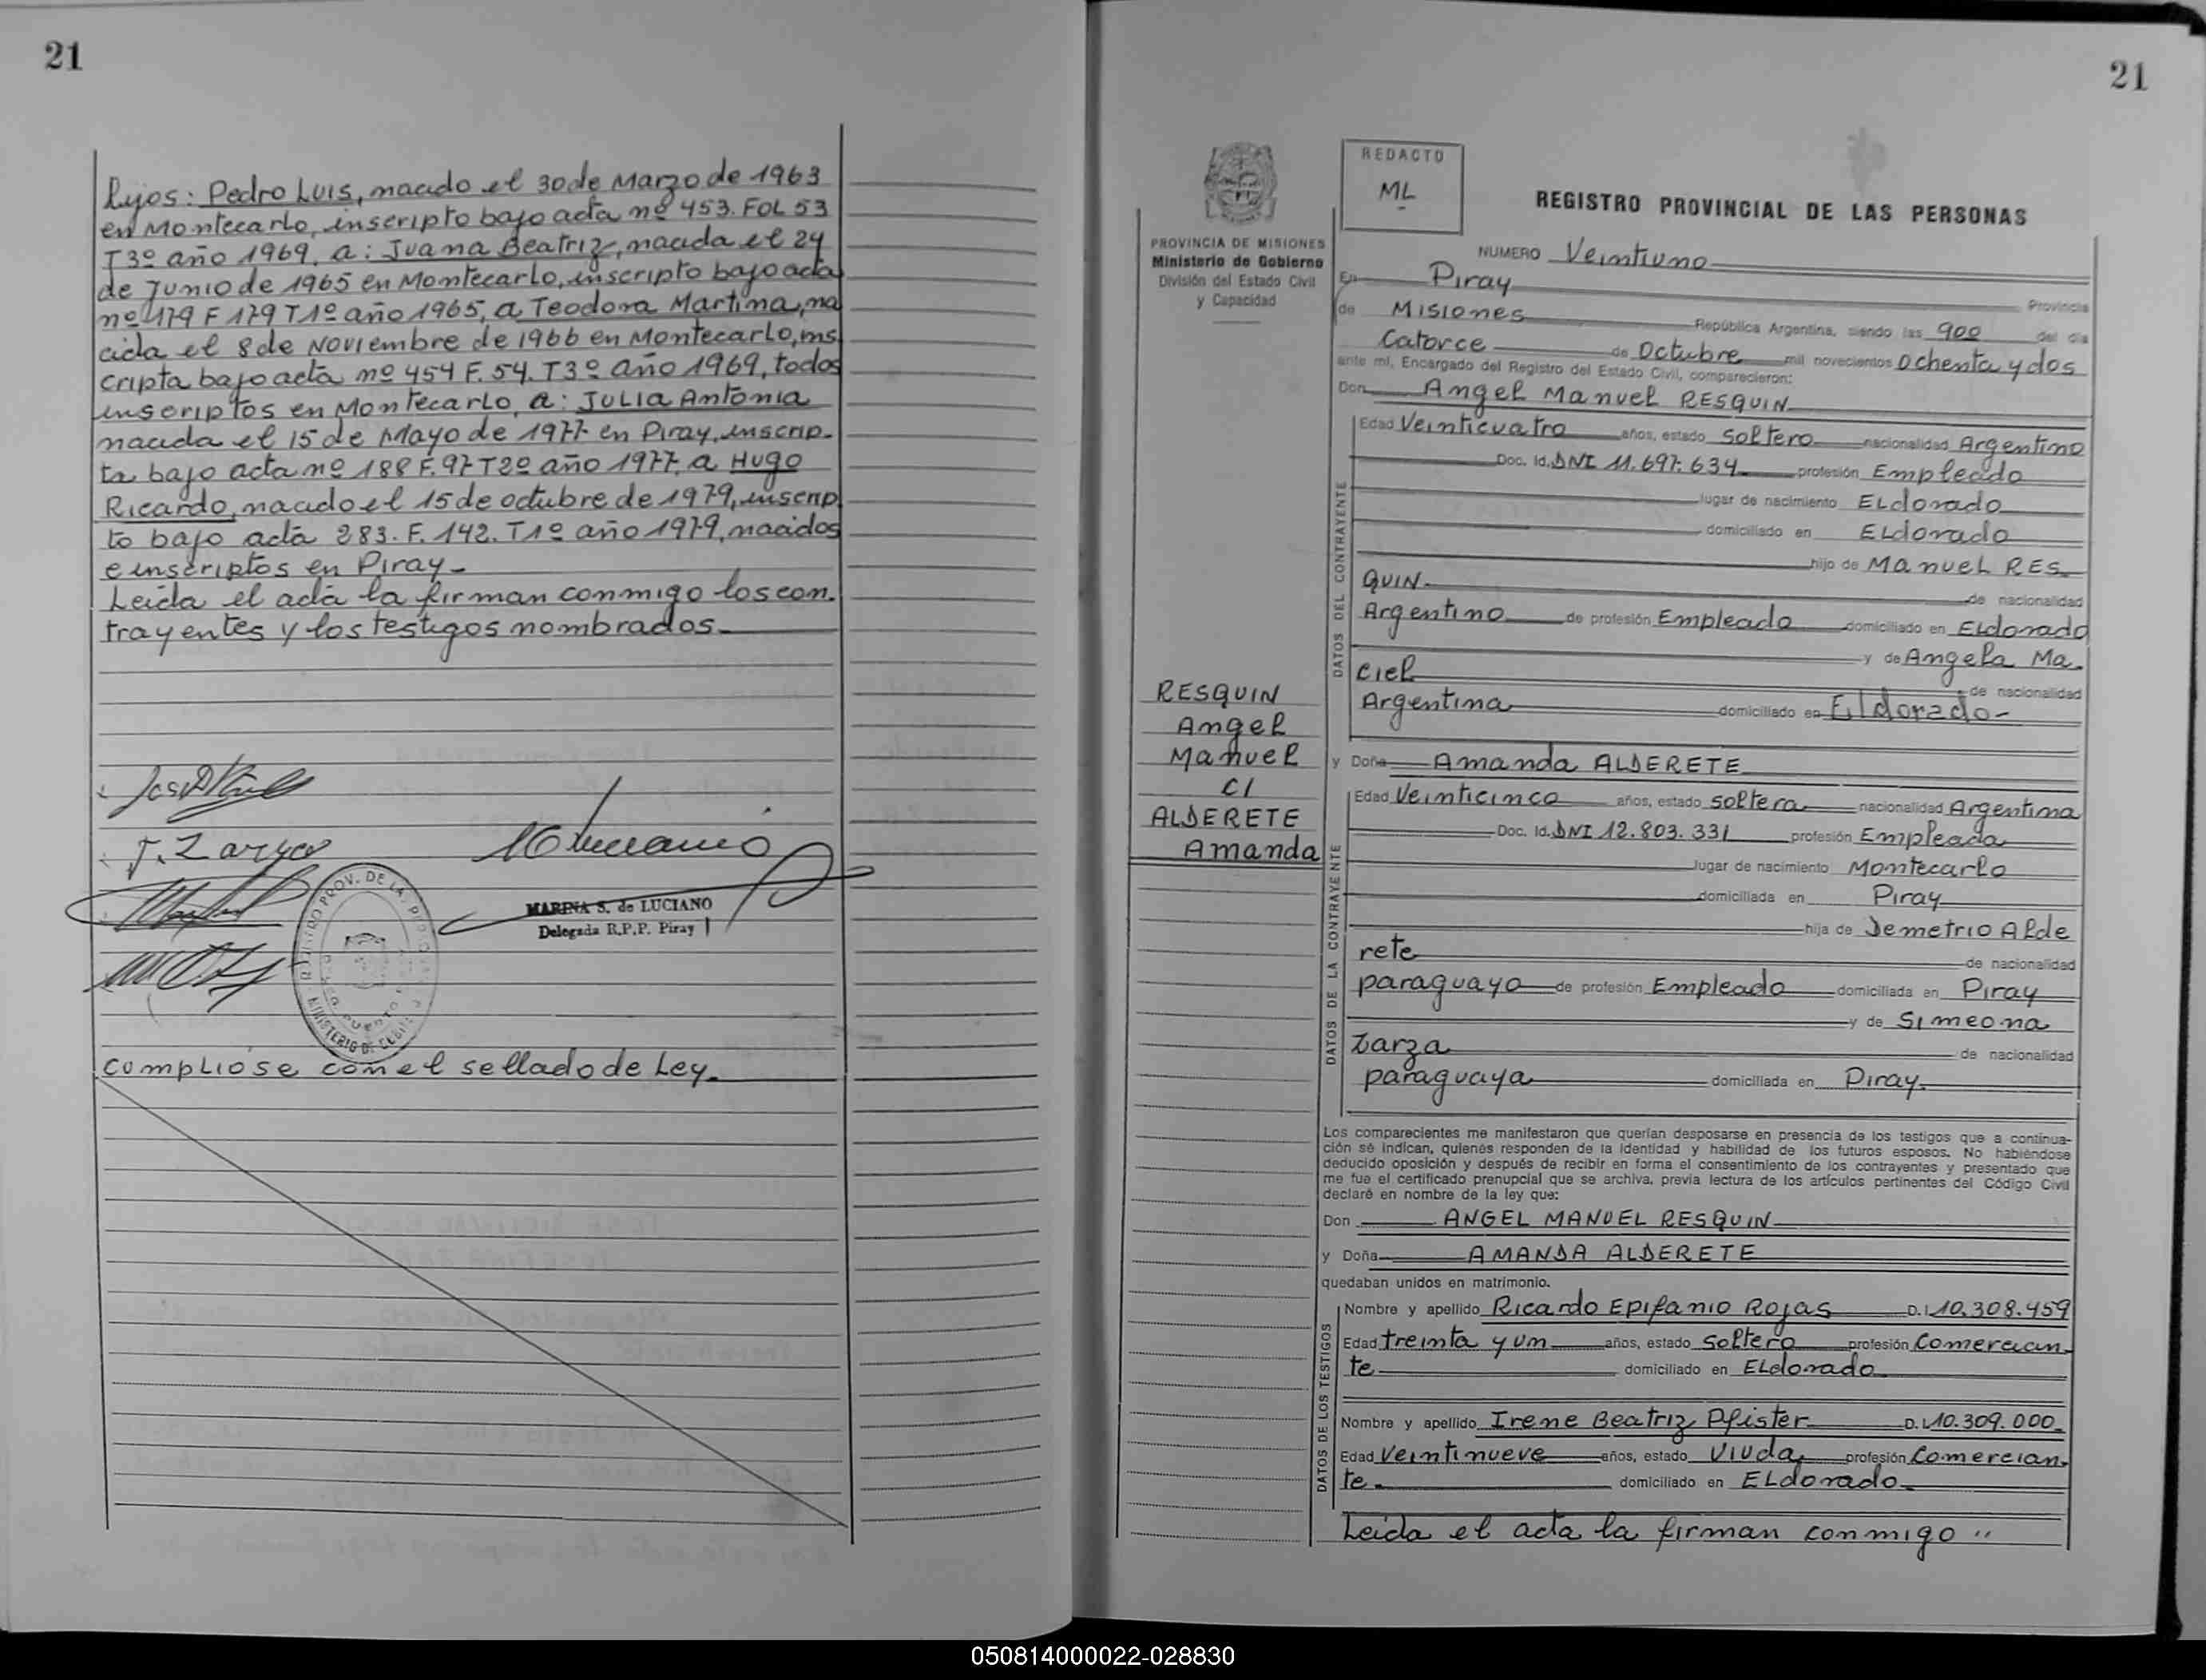 21
hijos: Pedro Luis, nacido el 30 de Marzo de 1963
en Montecarlo, inscripto bajo acta nº 453. FOL 53
T3º año 1969, a: Juana Beatriz, nacida el 24
de Junio de 1965 en Montecarlo, inscripto bajo acta
nº 179 F 179 T1º año 1965, a Teodora Martina, na
cida el 8 de Noviembre de 1966 en Montecarlo, ins
cripta bajo acta nº 454 F. 54. T3º año 1969, todos
inscriptos en Montecarlo, a: JULIA Antonia
nacida el 15 de Mayo de 1977 en Piray, inscrip-
ta bajo acta nº 188 F. 97 T2º año 1977, a Hugo
Ricardo, nacido el 15 de octubre de 1979, inscrip
to bajo acta 283. F. 142. T1º año 1979, nacidos
e inscriptos en Piray-
Leida el acta la firman conmigo los con.
trayentes y los testigos nombrados.
MARINA S. de LUCIANO
Delegada R.P.P. Piray
cumplióse con el sellado de Ley.
21
REDACTO
ML
REGISTRO PROVINCIAL DE LAS PERSONAS
PROVINCIA DE MISIONES
Ministerio de Gobierno
División del Estado Civil
y Capacidad
NUMERO Veintiuno
En Piray Provincia
de Misiones República Argentina, siendo las 900 del día
Catorce de Octubre mil novecientos Ochenta y dos
ante mí, Encargado del Registro del Estado Civil, comparecieron:
Don Angel Manuel RESQUIN
DATOS DEL CONTRAYENTE
Edad Veinticuatro años, estado soltero nacionalidad Argentino
Doc. Id. DNI 11.697.634 profesión Empleado
lugar de nacimiento ELdorado
domiciliado en ELdorado
hijo de Manuel RES
QUIN de nacionalidad
Argentino de profesión Empleado domiciliado en ELdorado
y de Angela Ma.
ciel de nacionalidad
Argentina domiciliado en Eldorado-
RESQUIN
Angel
Manuel
C/
ALDERETE
Amanda
y Doña Amanda ALDERETE
DATOS DE LA CONTRAYENTE
Edad Veinticinco años, estado soltera nacionalidad Argentina
Doc. Id. DNI 12.803.331 profesión Empleada
lugar de nacimiento Montecarlo
domiciliada en Piray
hija de Demetrio Alde
rete de nacionalidad
paraguayo de profesión Empleado domiciliada en Piray
y de Simeona
Zarza de nacionalidad
paraguaya domiciliada en Piray.
Los comparecientes me manifestaron que querían desposarse en presencia de los testigos que a continua-
ción se indican, quienes responden de la identidad y habilidad de los futuros esposos. No habiéndose
deducido oposición y después de recibir en forma el consentimiento de los contrayentes y presentado que
me fue el certificado prenupcial que se archiva, previa lectura de los artículos pertinentes del Código Civil
declaré en nombre de la ley que:
Don ANGEL MANUEL RESQUIN
y Doña AMANDA ALDERETE
quedaban unidos en matrimonio.
DATOS DE LOS TESTIGOS
Nombre y apellido Ricardo Epifanio Rojas D.I. 10.308.459
Edad treinta y un años, estado soltero profesión Comercian
te domiciliado en ELdorado
Nombre y apellido Irene Beatriz Pfister D.I. 10.309.000
Edad Veintinueve años, estado Viuda profesión Comercian
te. domiciliado en ELdorado
Leida el acta la firman conmigo "
050814000022-028830